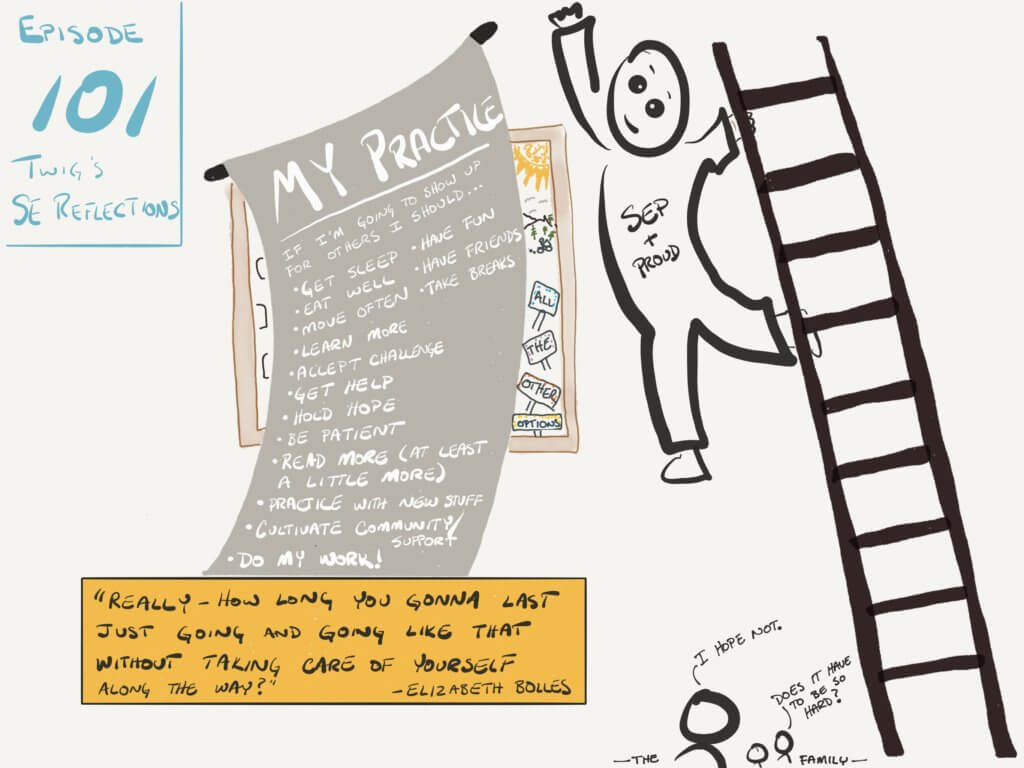 EPISODE
101
TWIG'S
SE REFLECTIONS
MY PRACTICE
IF I'M GOING TO SHOW UP
FOR OTHERS I SHOULD...
• GET SLEEP
• EAT WELL
• MOVE OFTEN
• LEARN MORE
• ACCEPT CHALLENGE
• GET HELP
• HOLD HOPE
• BE PATIENT
• READ MORE (AT LEAST
A LITTLE MORE)
• PRACTICE WITH NEW STUFF
• CULTIVATE COMMUNITY/
SUPPORT
• DO MY WORK!
• HAVE FUN
• HAVE FRIENDS
• TAKE BREAKS
ALL
THE
OTHER
OPTIONS
SEP
+
PROUD
"REALLY - HOW LONG YOU GONNA LAST
JUST GOING AND GOING LIKE THAT
WITHOUT TAKING CARE OF YOURSELF
ALONG THE WAY?"
- ELIZABETH BOLLES
I HOPE NOT.
DOES IT HAVE
TO BE SO
HARD?
— THE FAMILY —